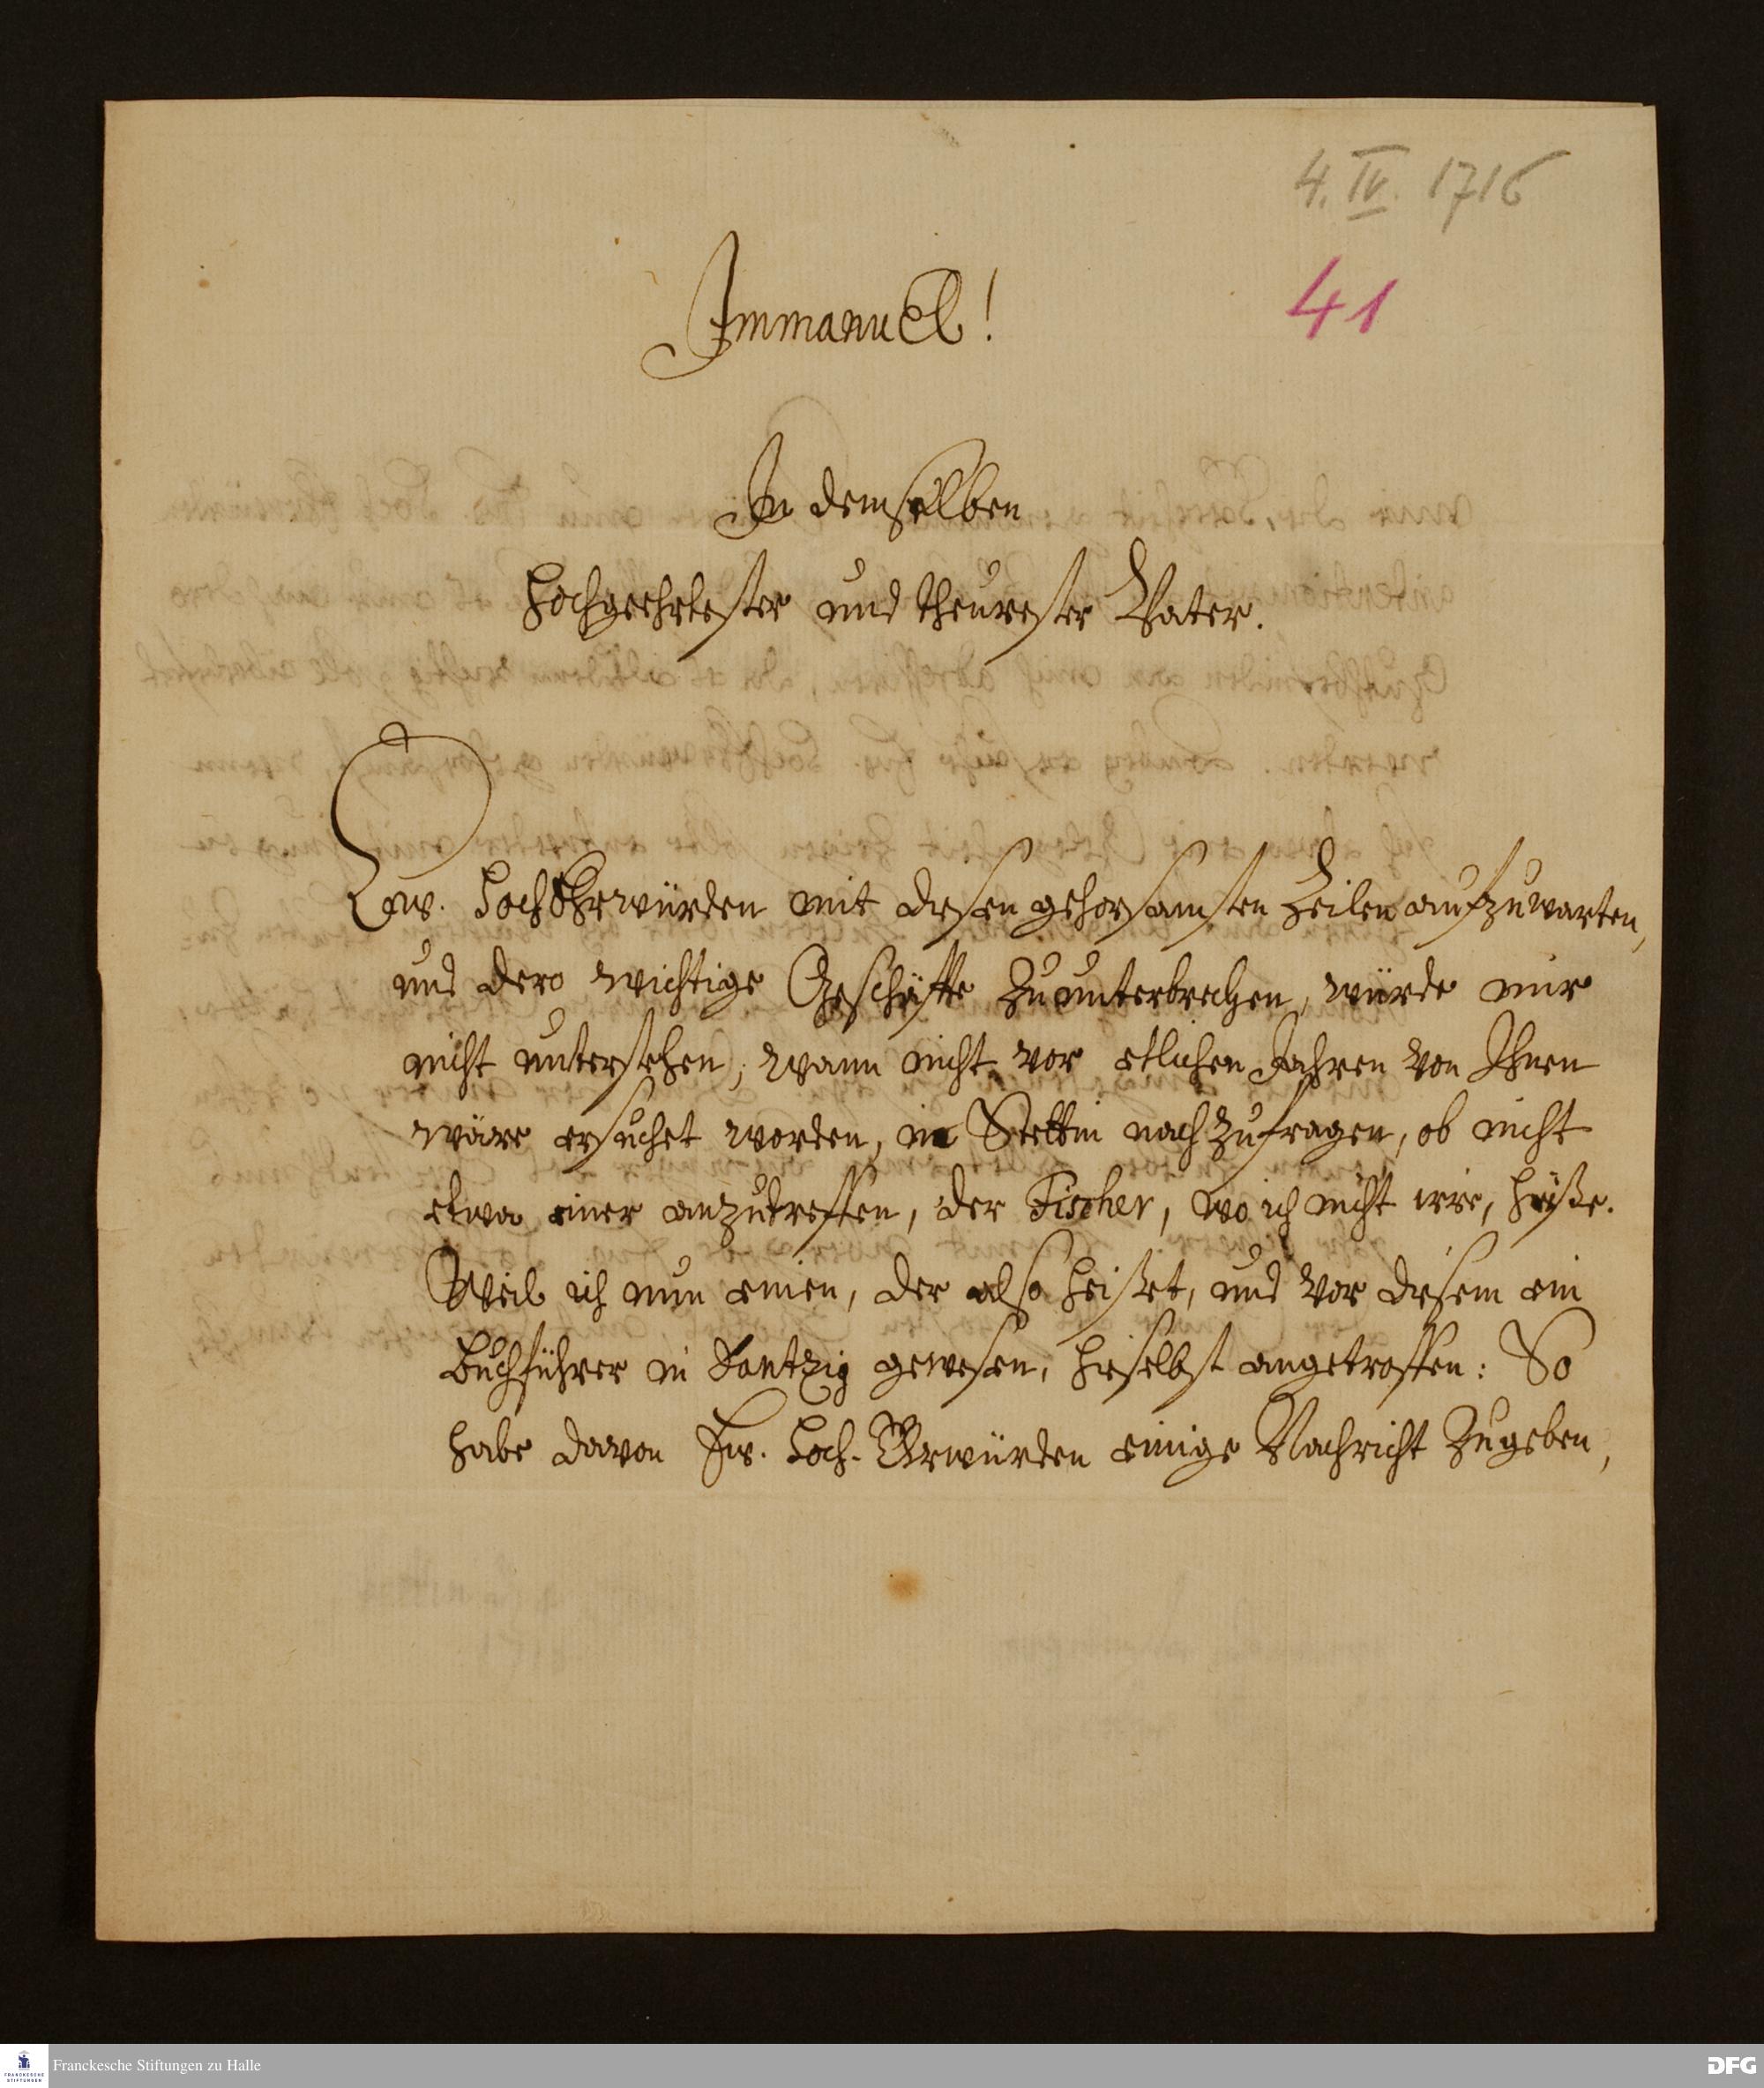 4. IV. 1716
41
Immanuel!
In demselben
Hochgeehrtester und theurester Vater.
Ew. HochEhrwürden mit diesen gehorsamsten Zeilen aufzuwarten,
und dero wichtige Geschäffte zu unterbrechen, würde mir
nicht unterstehen, wann nicht vor etlichen Jahren von Ihnen
wäre ersuchet worden, in Stettin nachzufragen, ob nicht
etwa einer anzutreffen, der Fischer, wo ich nicht irre, heiße.
Weil ich nun einen, der also heißet, und vor diesem ein
Buchführer in Dantzig gewesen, hieselbst angetroffen: So
habe davon Ew. Hoch-Ehrwürden einige Nachricht zugeben,
Franckesche Stiftungen zu Halle
DFG